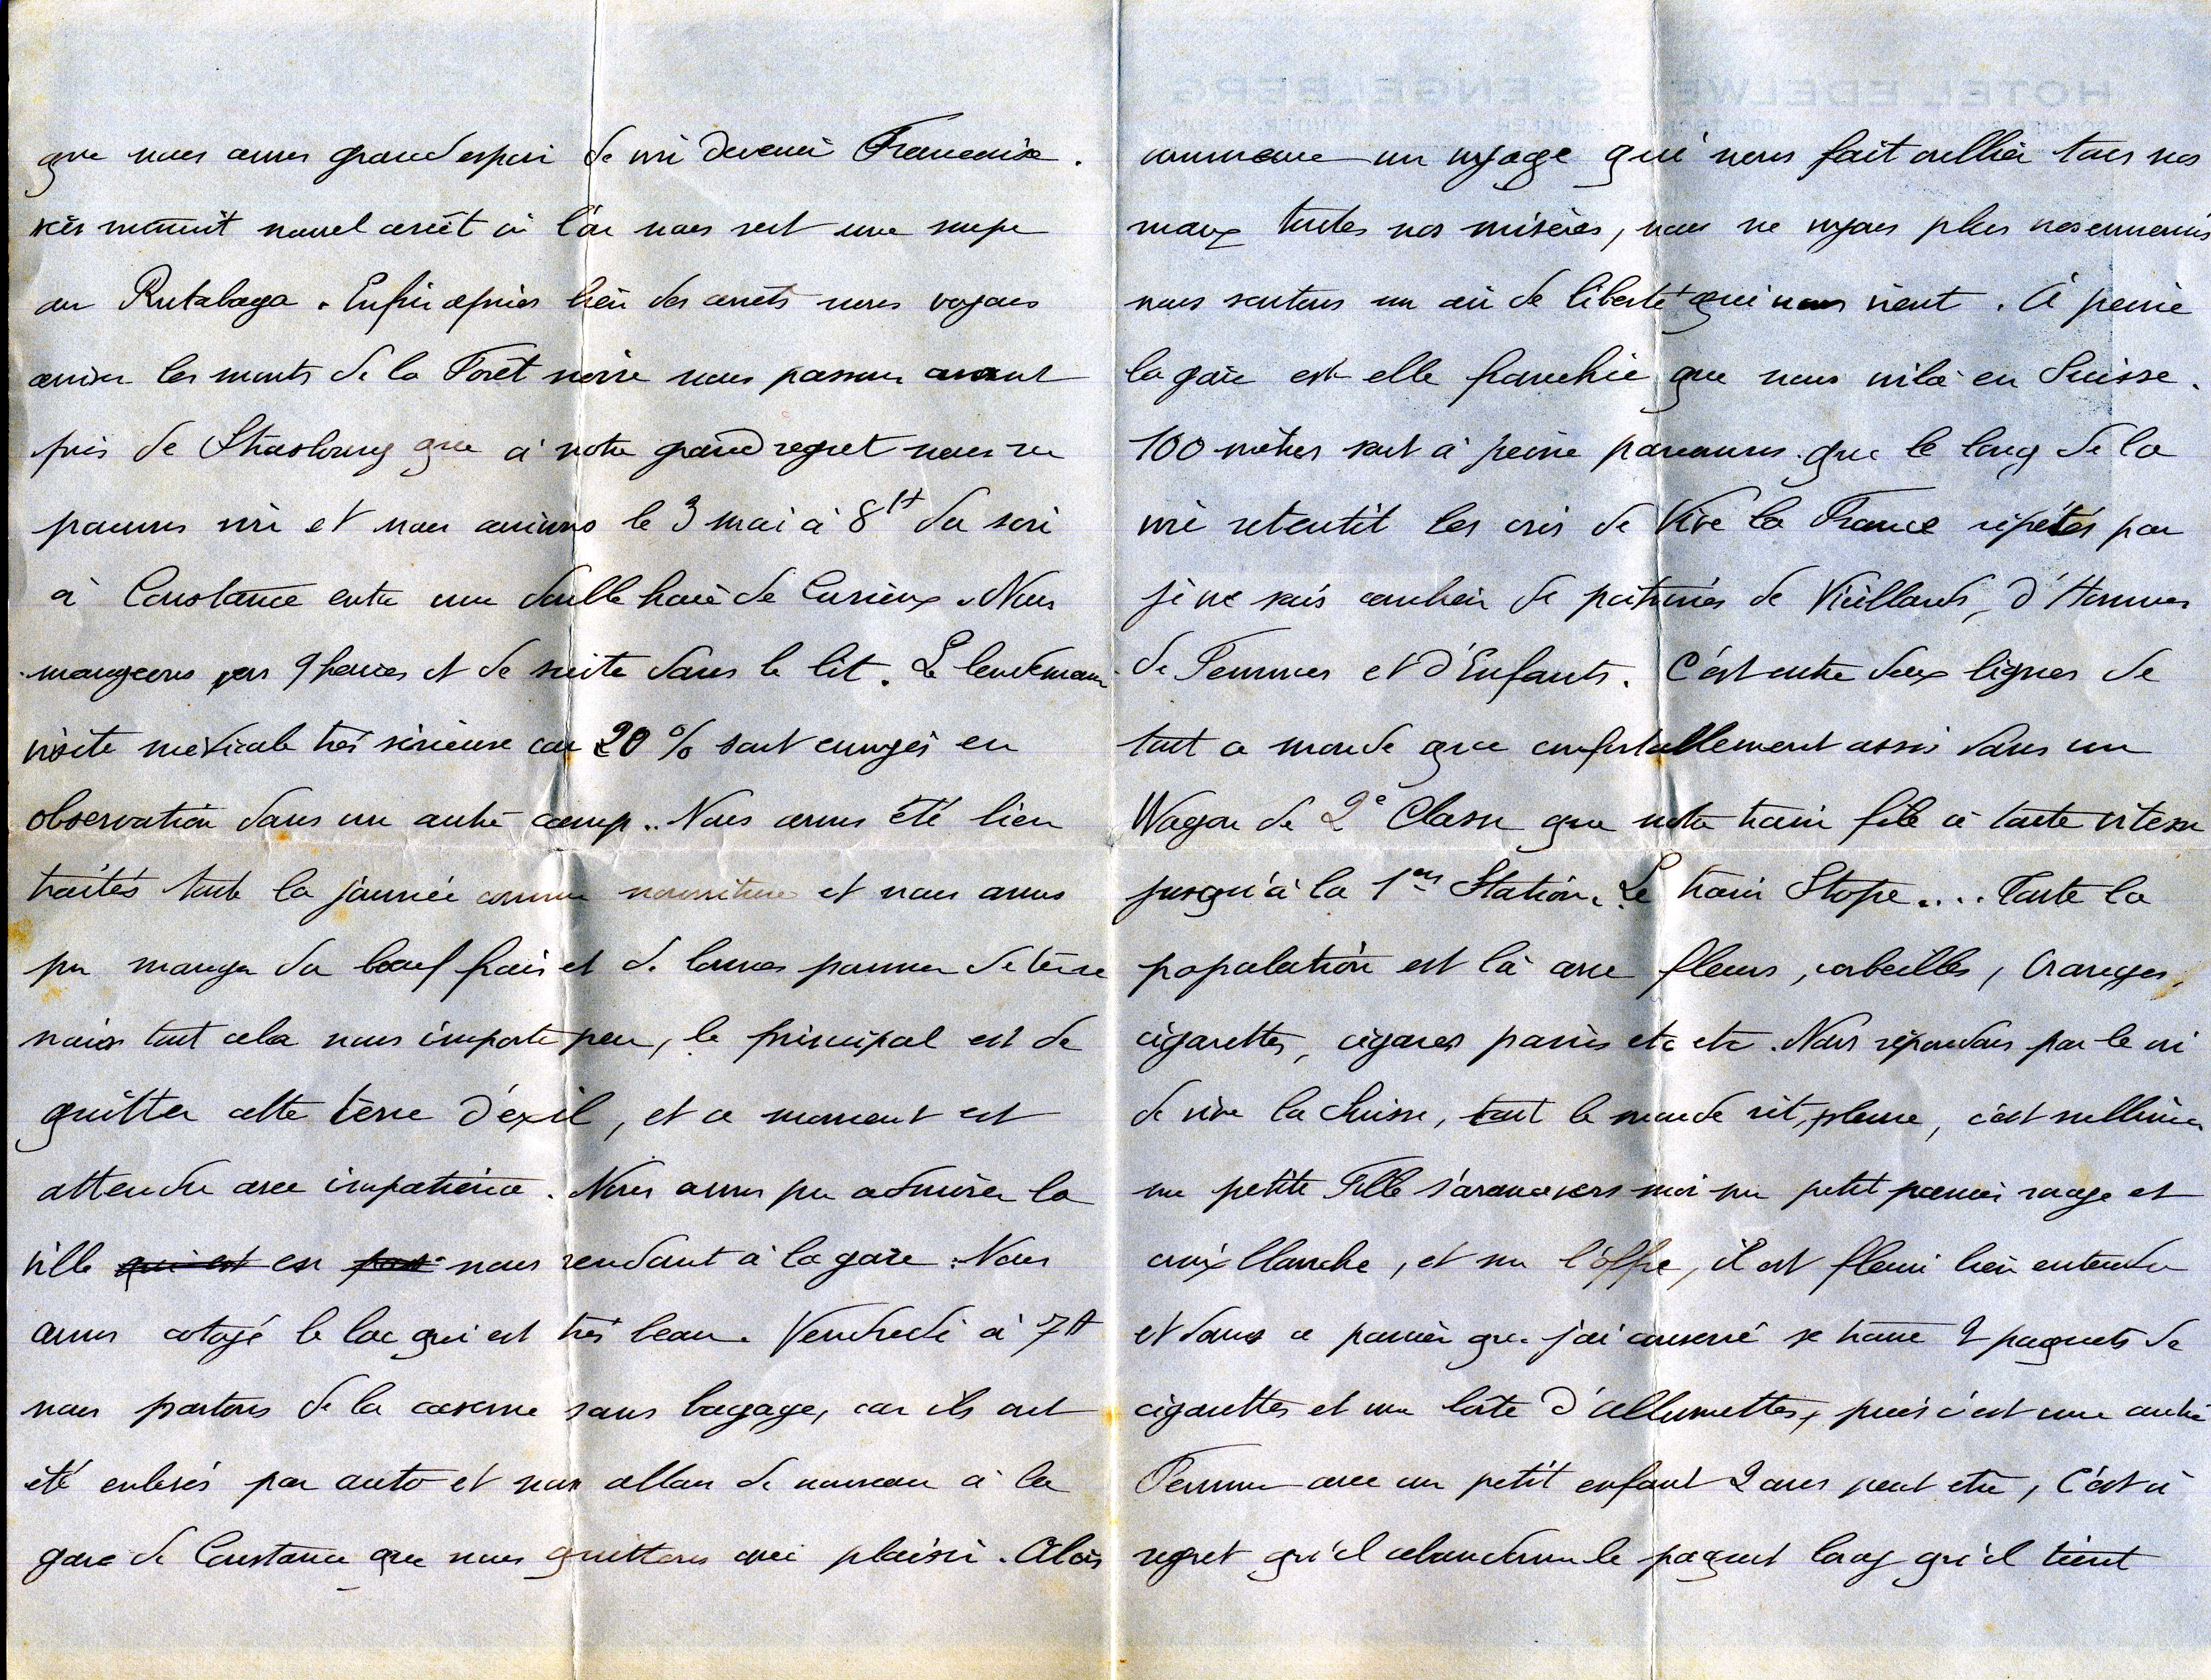 que nous avons grand espoir de voir devenir Française.
vers minuit nouvel arrêt où l'on nous sert une soupe
au Rutabaga. Enfin après bien des arrêts nous voyons
arriver les monts de la Forêt noire nous passons
près de Strasbourg que à notre grand regret nous ne
pouvons voir et nous arrivons le 3 mai à 8H du soir
à Constance entre une double haie de Curieux. Nous
mangeons vers 9 heures et de suite dans le lit. Le lendemain
visite médicale très sérieuse car 20 % sont envoyés en
observation dans un autre camp.. Nous avons été bien
traités toute la journée comme nourriture et nous avons
pu manger du boeuf frais et de bonnes pommes de terre
mais tout cela nous importe peu, le principal est de
quitter cette terre d'éxil, et ce moment est
attendu avec impatience. Nous avons pu admirer la
ville qui est en nous rendant à la gare. Nous
avons cotoyé le lac qui est très beau. Vendredi à 7H
nous partons de la caserne sans bagage, car ils ont
été enlevés par auto et nous allons de nouveau à la
gare de Constance que nous quittons avec plaisir. Alors
commence un voyage qui nous fait oublier tous nos
maux toutes nos misères, nous ne voyons plus nos ennemis
nous sentons un air de liberté qui nous vient. à peine
la gare est elle franchie que nous voilà en Suisse.
100 mètres sont à peine parcourus que le long de la
voie retentit les cris de Vive la France répétés par
je ne sais combien de poitrines de Vieillards, d'Hommes
de Femmes et d'Enfants. C'est entre deux lignes de
tout ce monde que confortablement assis dans un
Wagon de 2e Classe que notre train file à toute vitesse
jusqu'à la 1ère Station. Le train Stope.... Toute la
population est là avec fleurs, corbeilles, Oranges,
cigarettes, cigares paniers etc etc. Nous répondons par le cri
de vive la Suisse, tout le monde rit, pleure, c'est sublime
une petite Fille s'avance vers moi un petit panier rouge et
croix blanche, et me l'offre, il est fleuri bien entendu
et dans ce panier que j'ai conservé se trouve 2 paquets de
cigarettes et une boîte d'allumettes, puis c'est une autre
Femme avec un petit enfant 2 ans peut etre, C'est à
regret qu'il abandonne le paquet long qu'il tient
HOTEL EDELWEISS ENGELBERG